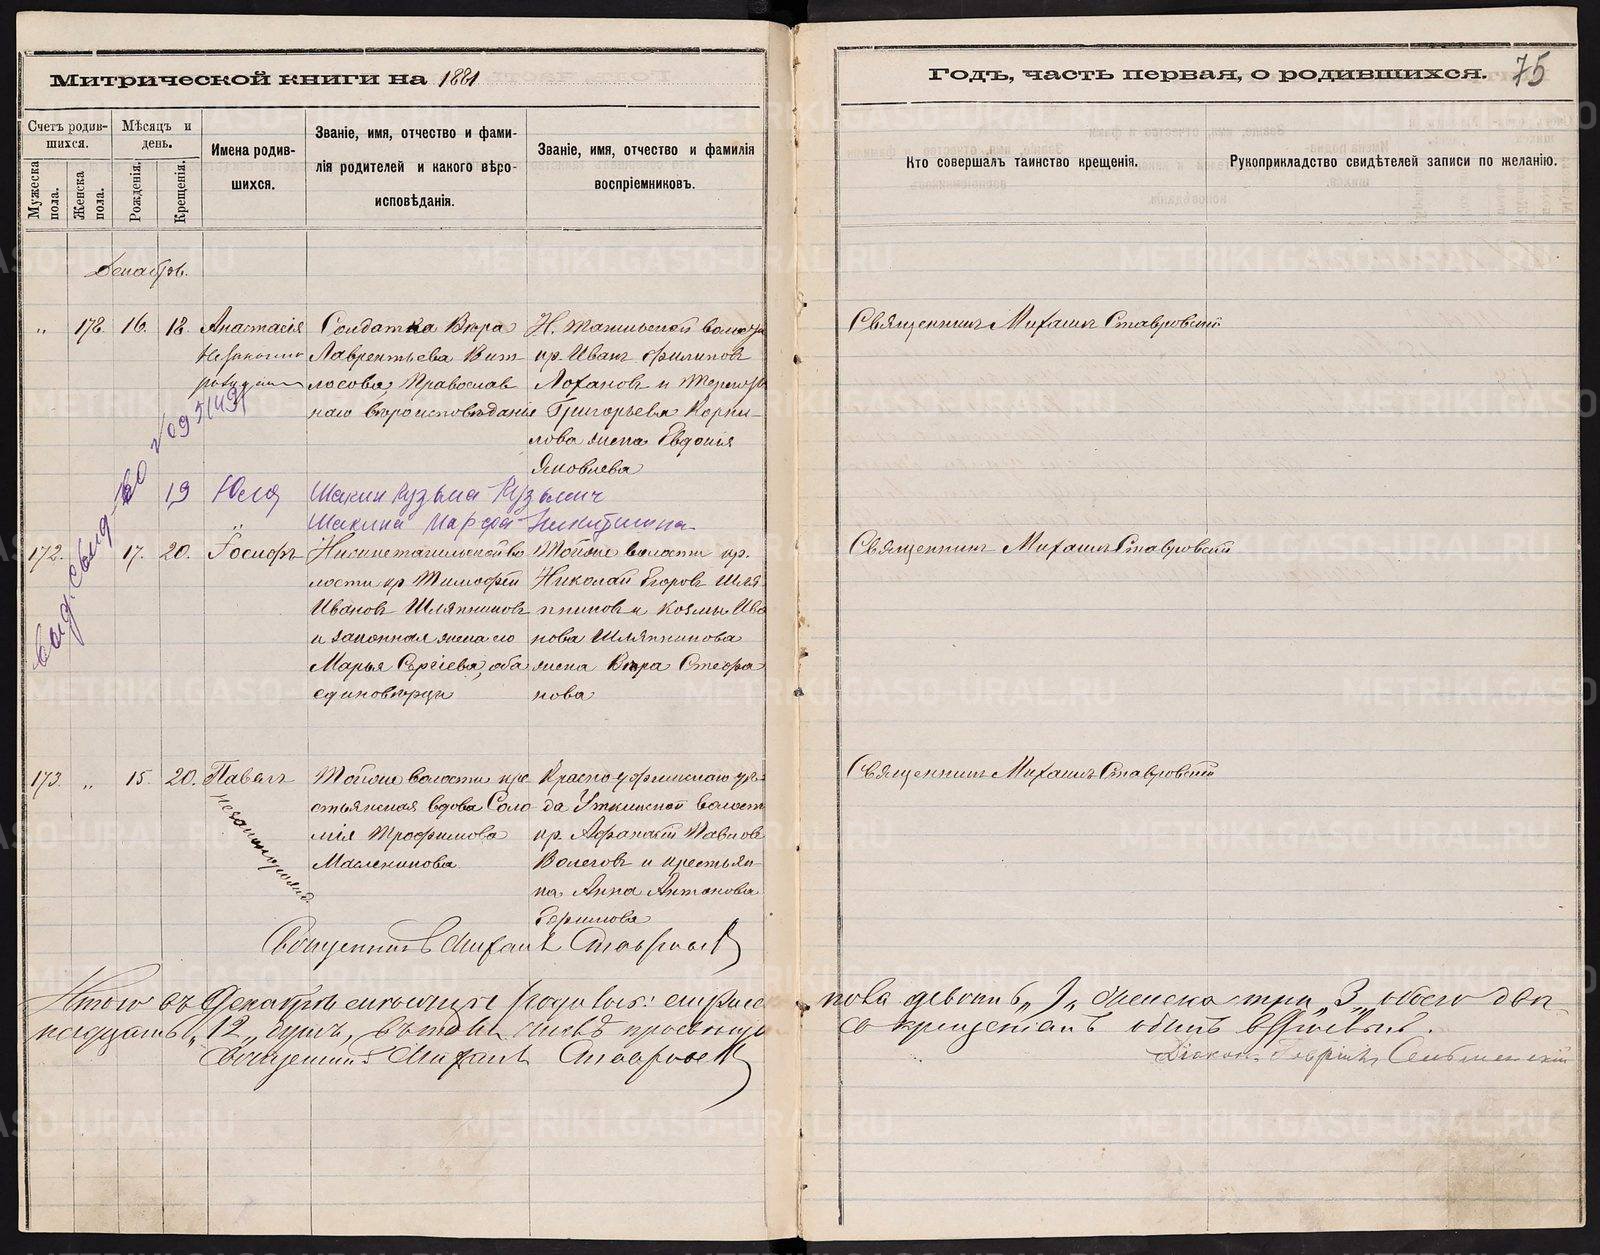 Митрической книги на 1881
Годъ, часть первая, о родившихся. 75
Счетъ родив-
шихся.
Мужеска пола.
Женска пола.
Мѣсяцъ и
день.
Рожденія.
Крещенія.
Имена родив-
шихся.
Званіе, имя, отчество и фами-
лія родителей и какого вѣро-
исповѣданія.
Званіе, имя, отчество и фамилія
воспріемниковъ.
Кто совершалъ таинство крещенія.
Рукоприкладство свидѣтелей записи по желанію.
Декабрь.
" 178. 16. 18. Анастасія
Незаконно
Солдатка Вѣра
Лаврентьева
Православ
наго вѣроисповѣданіе
Н. Тагильской
кр. Иванъ Филиповъ
Лохановъ и
Григорьева Корни-
лова жена Евдокія
Яковлева
Священникъ Михаилъ Ставровскій
19 Юля
Шакин Кузьма Кузьмич
Шакина Марфа Никитишна
выд. свид-во
172. 17. 20. Іосифъ
Нижнетагильской во
лости кр Тимофей
Ивановъ Шляпниковъ
и законная жена его
Марья Сергіева, оба
единовѣрцы
Тойже волости кр.
Николай Егоровъ Шля
пниковъ и Козмы Ива
нова Шляпникова
жена Вѣра Стефа
нова
Священникъ Михаилъ Ставровскій
173. " 15. 20. Павелъ
незаконнорожд.
Тойже волости кре
стьянская вдова Соло
мія Трофимова
Масленикова
Красноуфимскаго уѣз
да Уткинской волост
кр. Афанасій Павлов
Волеговъ и крестьян
ка Анна Антонова
Ефимова
Священникъ Михаилъ Ставровскій
Священникъ Михаилъ Ставровскій
Итого въ Декабрѣ мѣсяцѣ родилось: мужеска
пола девять „9„ женска три „3„ обоего две-
надцать „12„ душъ, въ томъ числѣ
Священникъ Михаилъ Ставровскій
Діаконъ
METRIKI.GASO-URAL.RU